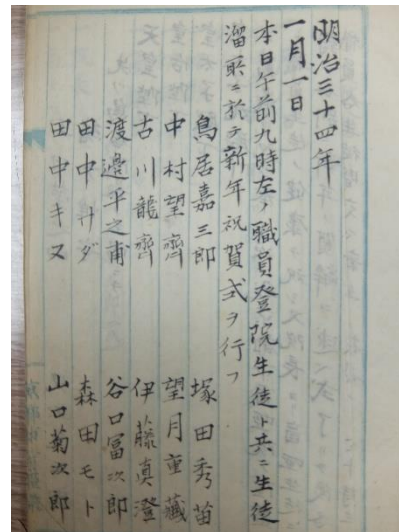 明治三十四年
一月一日
本日午前九時左ノ職員登院生徒ト共ニ生徒
溜所ニ於テ新年祝賀式ヲ行フ
鳥居嘉三郎 塚田秀苗
中村望齊 望月重藏
古川龍齊 伊藤真澄
渡邉平之甫 谷口冨次郎
田中サダ 森田モト
田中キヌ 山口菊次郎